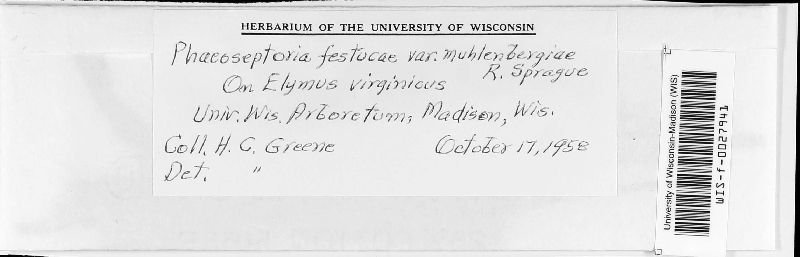 HERBARIUM OF THE UNIVERSITY OF WISCONSIN
Phaeoseptoria festucae var. muhlenbergiae
R. Sprague
On Elymus virginicus
Univ. Wis. Arboretum, Madison, Wis.
Coll. H. C. Greene October 17, 1958
Det. "
University of Wisconsin-Madison (WIS)
WIS-f-0027941